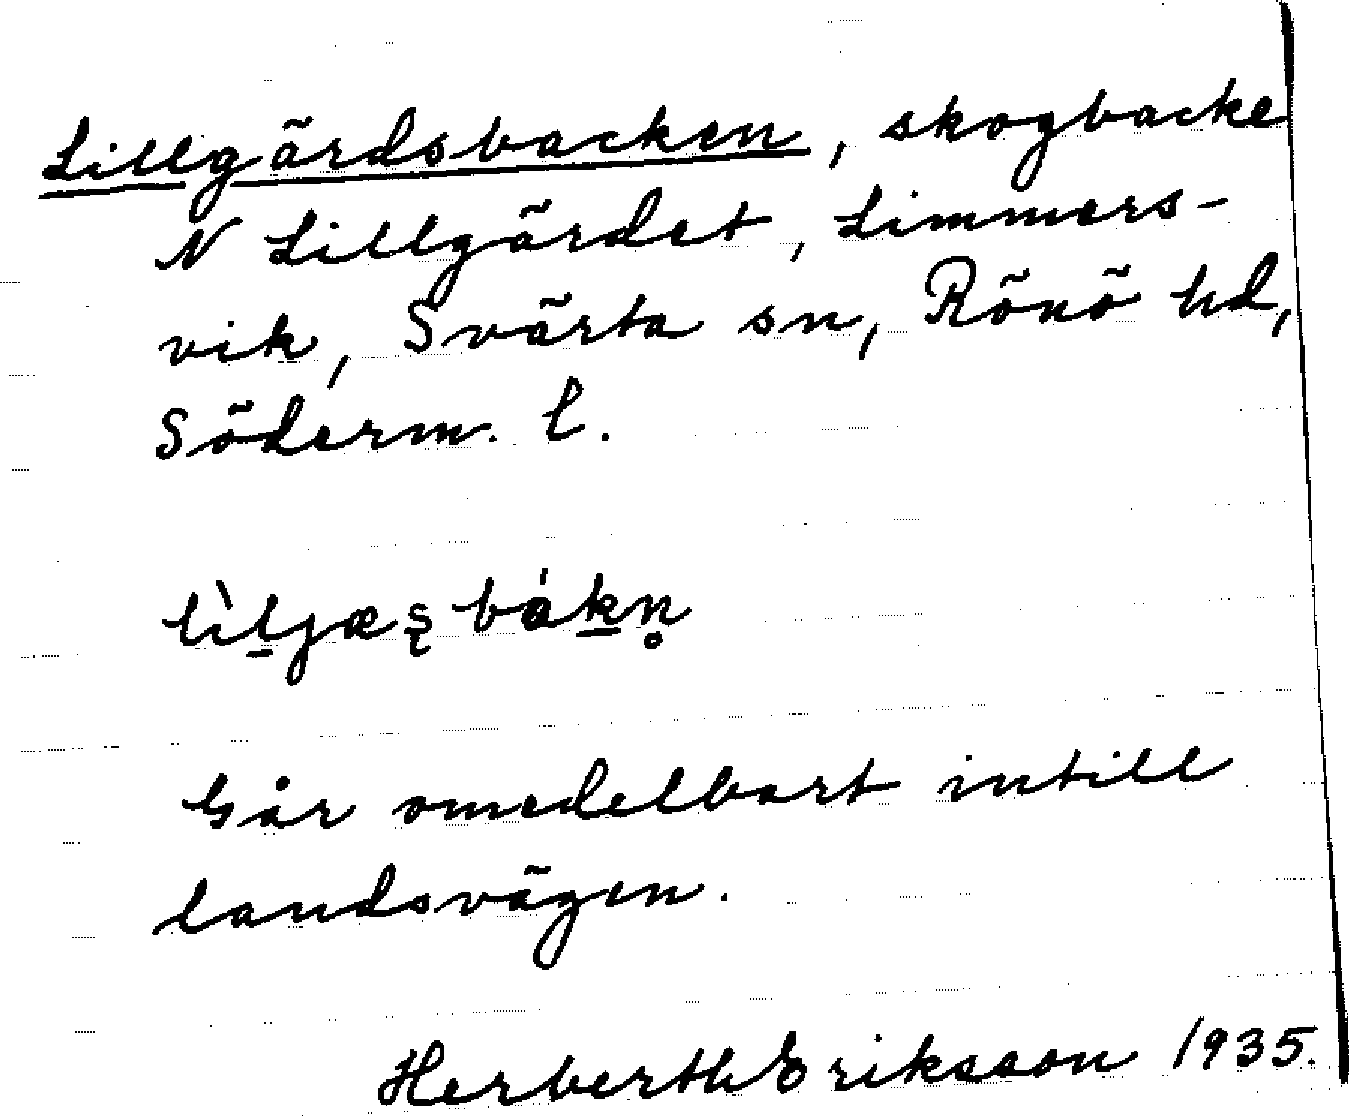 Lillgärdsbacken, skogbacke
N Lillgärdet, Limmers-
vik, Svärta sn, Rönö hd,
Söderm. l.
Går omedelbart intill
landsvägen.
Herberth Eriksson 1935.